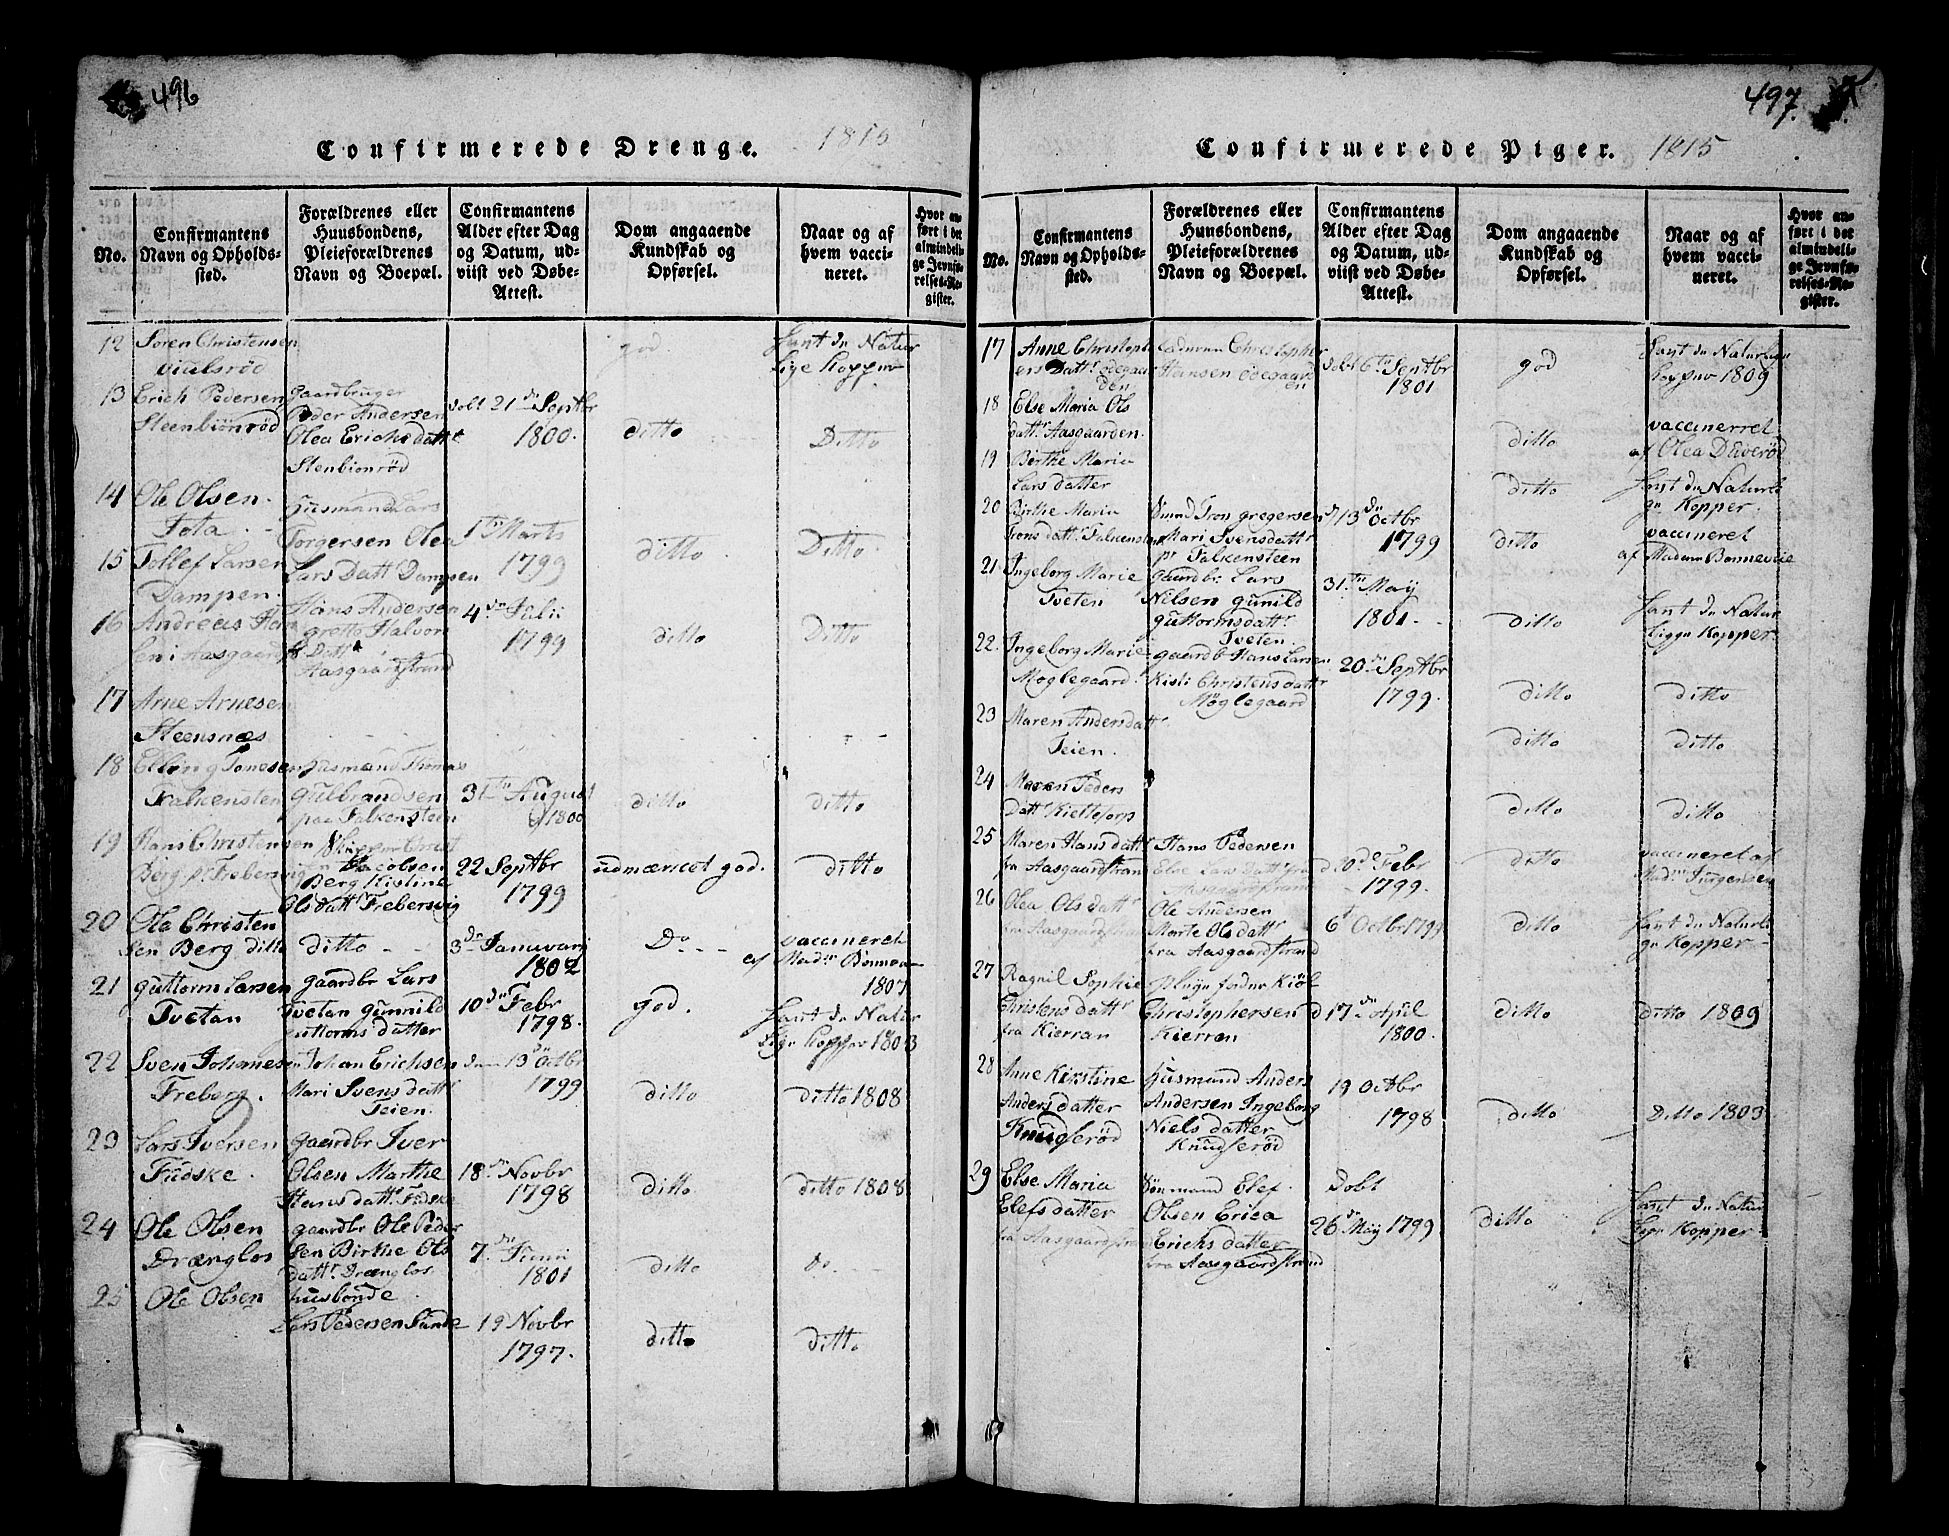 496
Confirmerede Drenge. 1815
No.
Confirmantens
Navn og Opholds-
sted.
Forældrenes eller
Huusbondens,
Pleieforældrenes
Navn og Boepæl.
Confirmantens
Alder efter Dag
og Datum, ud-
viist ved Døbe-
Attest.
Dom angaaende
Kundskab og
Opførsel.
Naar og af
hvem vacci-
neret.
Hvor an-
ført i det
almindeli-
ge Jevnfø-
relses-Re-
gister.
12 Soren Christensen
god
hant de Natur
lige Kopper
13 Erich Pedersen
Steenbiönrød
Gaardbruger
Peder Andersen
Olea Erichs datt
Stenbionrød
dobt 21 de Septbr
1800.
ditto
Ditto
14 Ole Olsen
Tota
15 Tollef Larsen
Dampen.
Husmand Lars
Torgersen Olea
Lars Datt Dampen
1 te Marts
1799
ditto
Ditto
16 Andreas Han
sen i Aasgaards
Hans Andersen
grette Halvor
s Datt
Aasgaardstrand
4 de Julii
1799
ditto
Ditto
17 Arne Arnesen
Steensnæs
18 Elling Tomesen
Falkensten
Husmand Thomas
Gulbrandsen
paa Falkensteen
31 te August
1800
ditto
ditto
19 Hans Christensen
Berg pr Frebersvig
Skipper Christ
Jacobsen
Berg Kistine
Ols datt Frebersvig
22 Septbr
1799
udmærcet god.
ditto
20 Ole Christen
sen Berg ditto
ditto
3 de Januvarj
1802
Do
vaccineret
af Madm Bonneva
1807
21 Guttorm Larsen
Tvetan
gaardbr Lars
Tvetan Gunnild
guttorms datter
10 de Febr
1798.
god.
hant de Natur
lige Kopper 1803
22 Sven Johanesen
Freberg.
Johan Erichsen
Mari Svens datt
Teien.
den 13 de Octbr
1799
ditto
ditto 1808
23 Lars Iversen
Fudske.
gaardbr Iver
Olsen Marthe
Hans datt Fudske
18 de Novbr
1798
ditto
ditto 1808
24 Ole Olsen
Drænglos
gaardbr Ole Peder
sen Birthe Ols
dattr Drænglos
7 de Juni
1801
ditto
do
25 Ole Olsen
husbonde
Lars Pedersen Sunde
19 Novbr
1797.
ditto
ditto
497.
Confirmerede Piger. 1815
No.
Confirmantens
Navn og Opholds-
sted.
Forældrenes eller
Huusbondens,
Pleieforældrenes
Navn og Boepæl.
Confirmantens
Alder efter Dag
og Datum, ud-
viist ved Døbe-
Attest.
Dom angaaende
Kundskab og
Opførsel.
Naar og af
hvem vacci-
neret.
Hvor an-
ført i det
almindeli-
ge Jevnfø-
relses-Re-
gister.
17 Anne Christoph
ers Dattr ødegaar
den
Christopher
Hansen ødegaard
en
dobt 6 te Septbr
1801
god
hant de Naturlige
Kopper 1809
18 Else Maria Ols
dattr Aasgaarden.
ditto
vaccinerret
af Olea Duverød
19 Birthe Maria
Lars datter
ditto
hant de Naturli
ge Kopper.
20 Birthe Maria
Trons datt Falkensten
Tron gregersen
Mari Svensdattr
pr Falkensteen
d 13 de Octbr
1799
ditto
vaccineret
af Madam Bonnevie
21 Ingeborg Marie
Tveten
gaardbr Lars
Nilsen gunild
guttormsdattr
Tveten.
31 te Maÿ
1801.
ditto
hant de Natur
ligge Kopper
22. Ingeborg Marie
Moglegaard.
gaardb Hans Larsen
Kisti Christens dattr
Møglegaard
20 de Septbr
1799.
ditto
ditto
23 Maren Andersdattr
Teien.
ditto
ditto
24 Maren Peders
Datt Kiettetorp
ditto
ditto
25 Maren Hans dattr
fra Aasgaardstran
Hans Pedersen
Else Lars Datt fra
Aasgaardstrand
d 20 de Febr
1799.
ditto
vaccineret af
Madm Jürgensen
26 Olea Ols dattr
fra Aasgaardstrand
Ole Andersen
Marte Ols dattr
fra Aasgaardstrand
6 t Octbr 1799
ditto
hant de Naturli
ge Kopper
27 Ragnil Sophie
Christens dattr
fra Kierran
pleje fader Kiöl
Christophersen
Kierran
d 17 de April
1800.
ditto
ditto 1809
28 Anne Kirstine
Anders datter
Knugserød
Husmand Anders
Andersen Ingeborg
Niels datter
Knugserød
19 Octbr
1798
ditto
Ditto 1803
29 Else Maria
Elefs datter
fra Aasgaardstrand
Elef
Olsen Erica
Erichs datter
fra Aasgaardstrand
Dobt
26 de Maÿ 1799
ditto
hant de Natur
lige Kopper